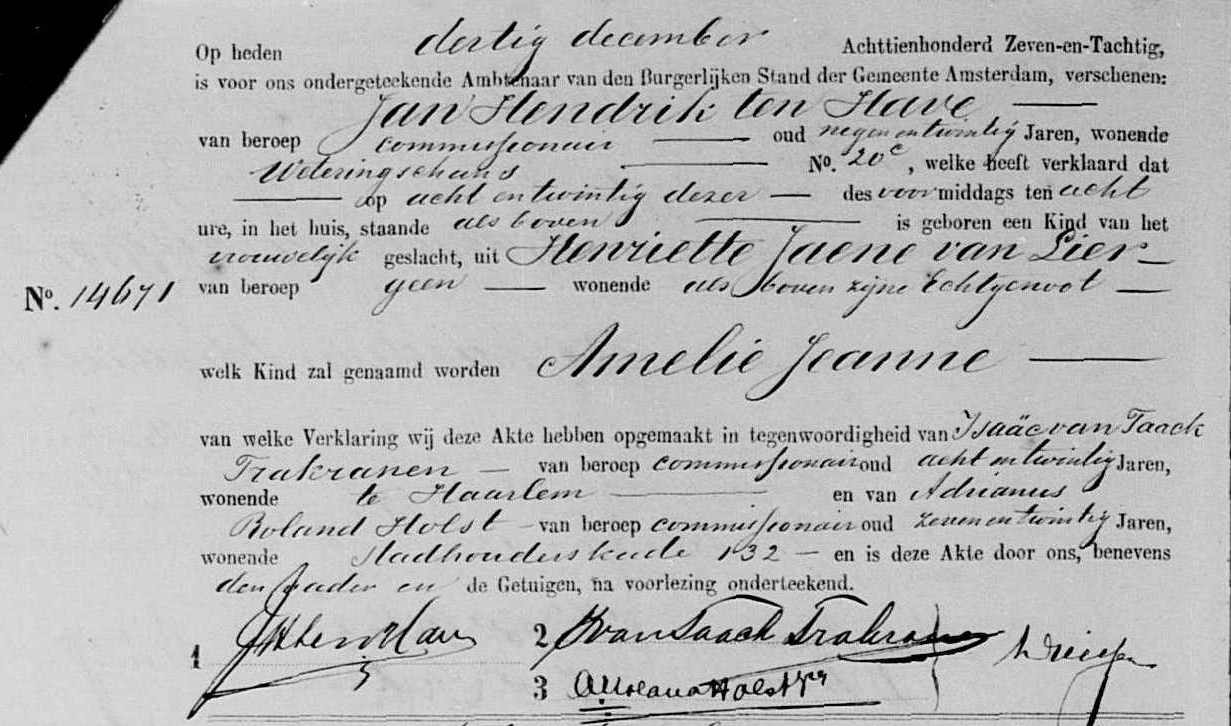 Op heden dertig december Achttienhonderd Zeven-en-Tachtig,
is voor ons ondergeteekende Ambtenaar van den Burgerlijken Stand der Gemeente Amsterdam, verschenen:
Jan Hendrik ten Have
van beroep commissionair oud negenentwintig Jaren, wonende
Weteringschans No. 20c, welke heeft verklaard dat
op acht en twintig dezer des voormiddags ten acht
ure, in het huis, staande als boven is geboren een Kind van het
vrouwelijk geslacht, uit Henriette Jaene van Lier
No. 14671 van beroep geen wonende als boven zijne Echtgenoot
welk Kind zal genaamd worden Amelie Jeanne
van welke Verklaring wij deze Akte hebben opgemaakt in tegenwoordigheid van Isaäc van Taack
Trakranen van beroep commissionair oud acht en twintig Jaren,
wonende te Haarlem en van Adrianus
Roland Holst van beroep commissionair oud zeven en twintig Jaren,
wonende Stadhouderskade 132 en is deze Akte door ons, benevens
den vader en de Getuigen, na voorlezing onderteekend.
1 JH ten Have 2 I van Taack Trakranen
3 A Roland Holst